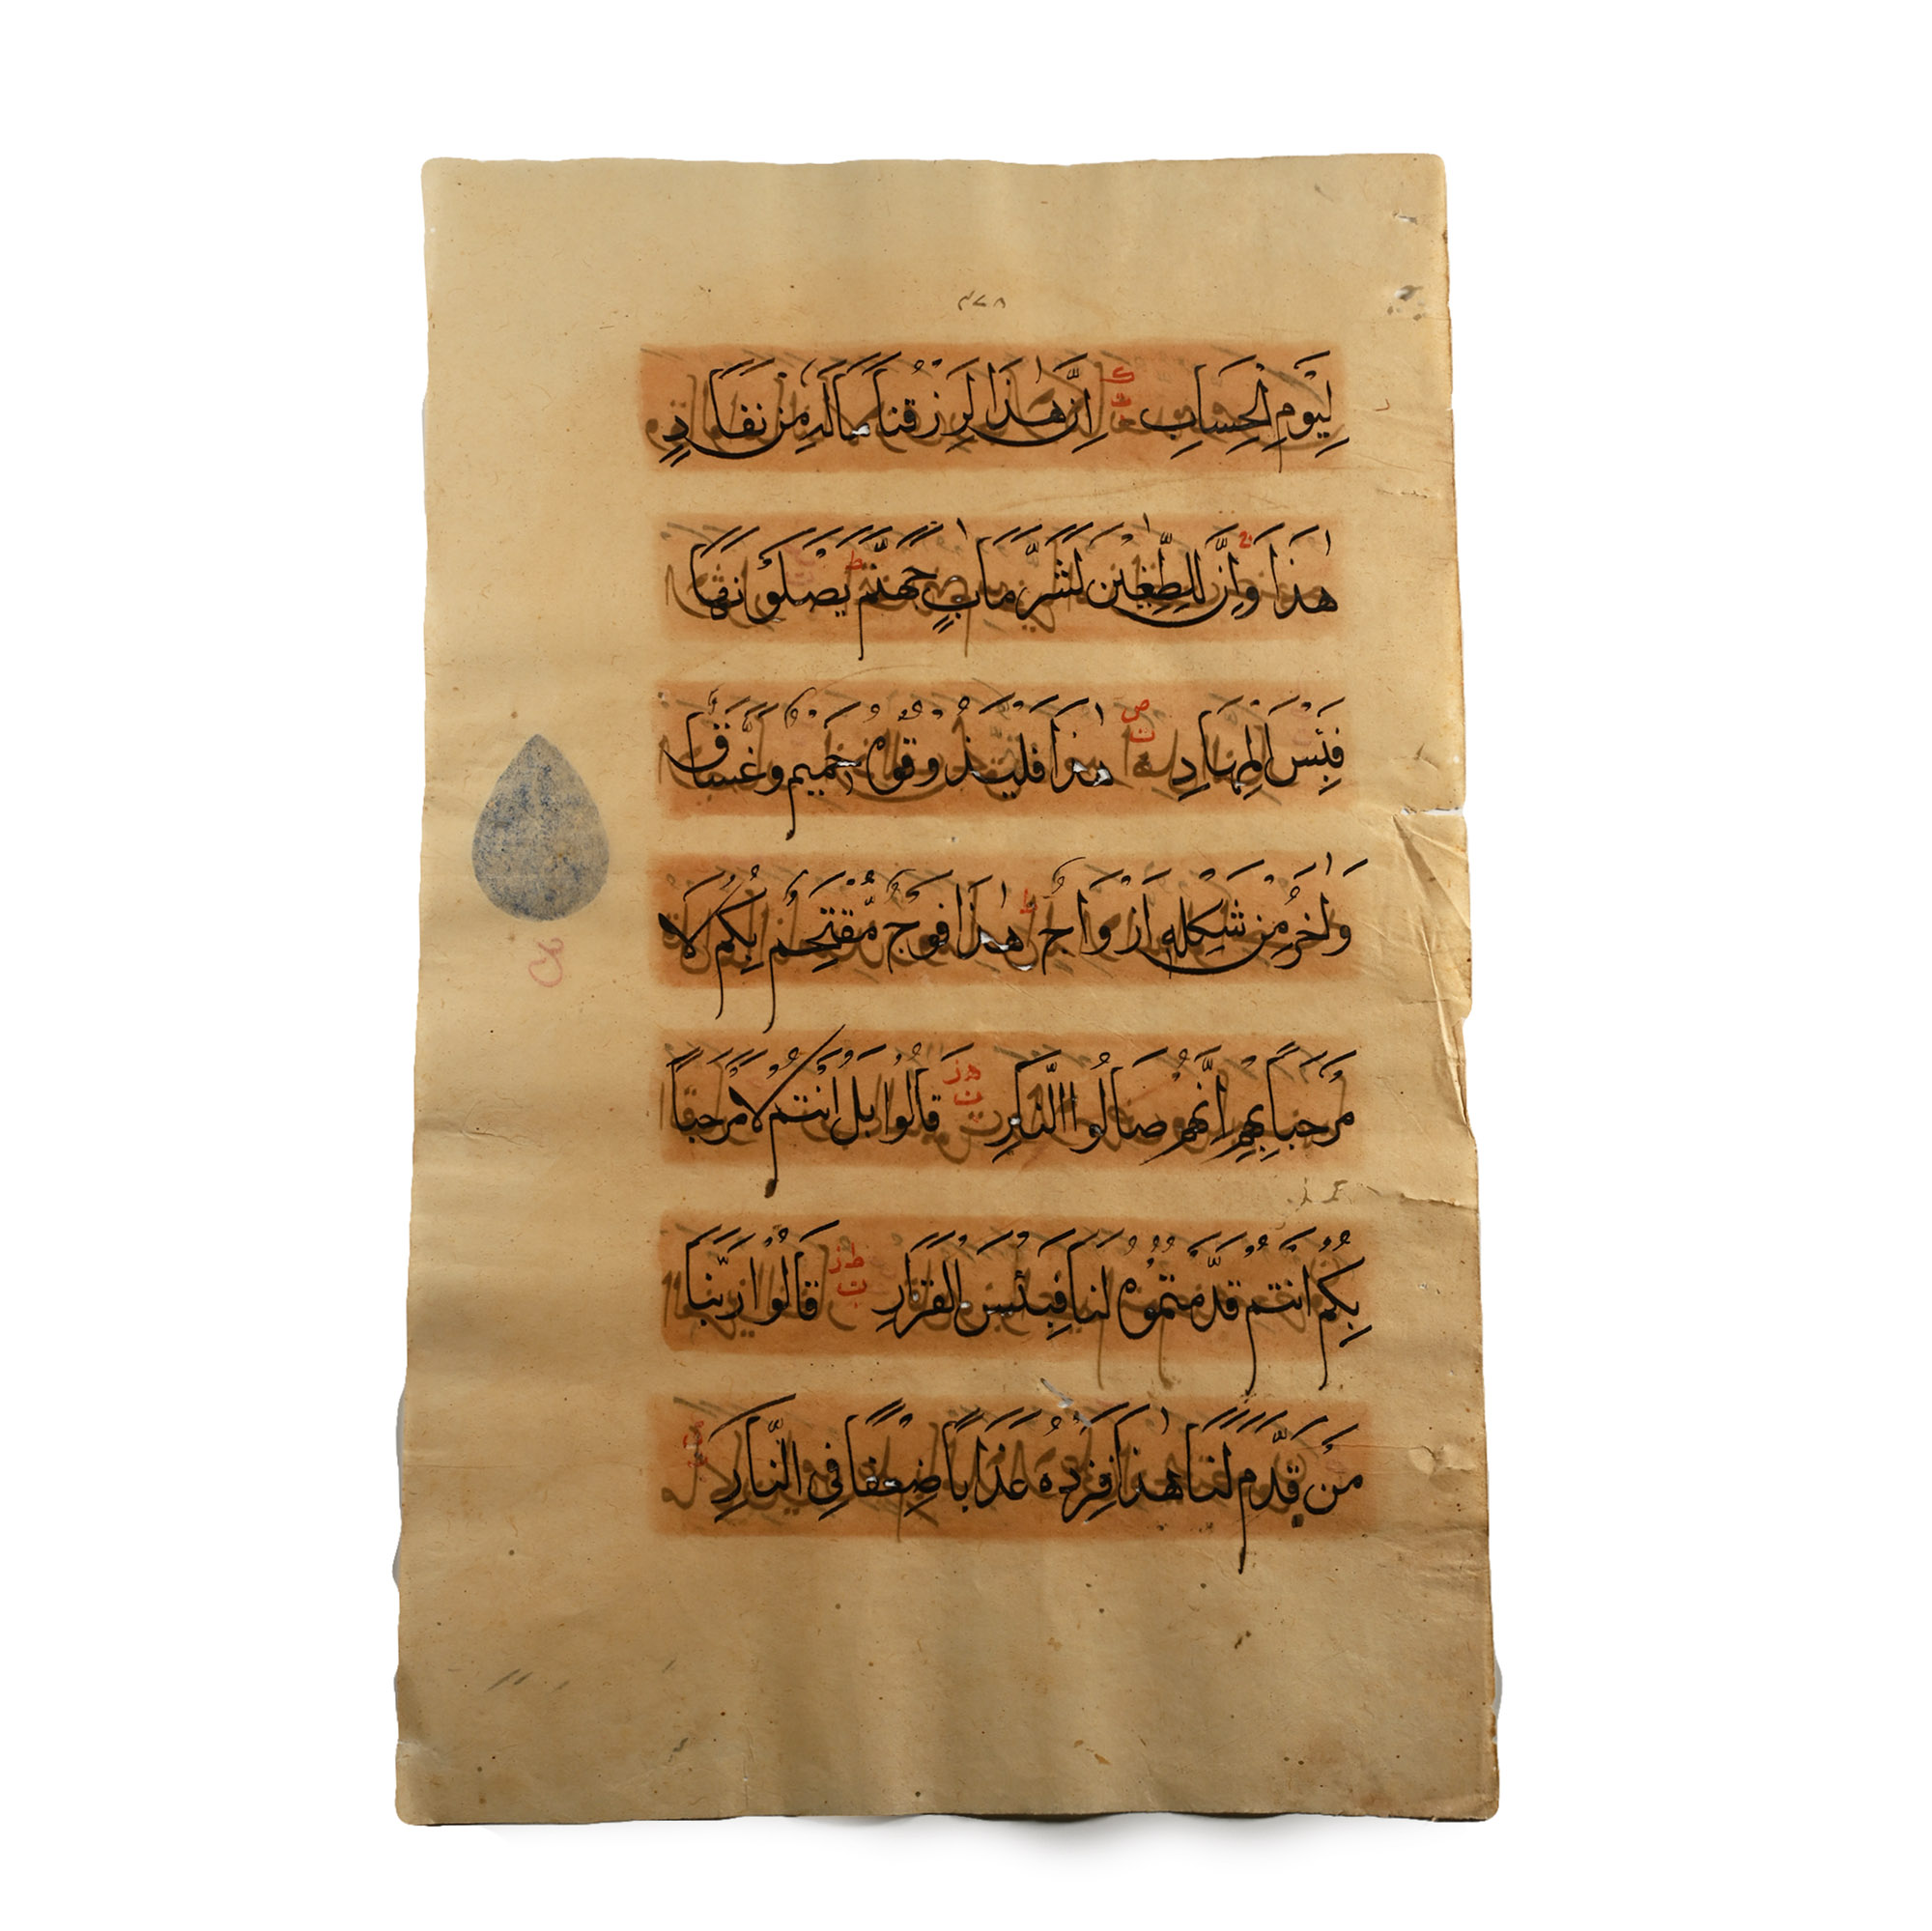 لِيَوْمِ الْحِسَابِ اِنَّ هٰذَا لَرِزْقُنَا مَالَهُ مِنْ نَفَادٍ
هٰذَا وَاِنَّ لِلطّٰغِيْنَ لَشَرَّ مَاٰبٍ جَهَنَّمَ يَصْلَوْنَهَا
فَبِئْسَ الْمِهَادِ هٰذَا فَلْيَذُوْقُوْهُ حَمِيْمٌ وَغَسَّاقٌ
وَاٰخَرُ مِنْ شَكْلِهٖ اَزْوَاجٌ هٰذَا فَوْجٌ مُّقْتَحِمٌ بِكُمْ لَا
مَرْحَبًا بِهِمْ اِنَّهُمْ صَالُوا النَّارِ قَالُوْا بَلْ اَنْتُمْ لَا مَرْحَبًا
بِكُمْ اَنْتُمْ قَدَّمْتُمُوْهُ لَنَا فَبِئْسَ الْقَرَارِ قَالُوْا رَبَّنَا
مَنْ قَدَّمَ لَنَا هٰذَا فَزِدْهُ عَذَابًا ضِعْفًا فِى النَّارِ